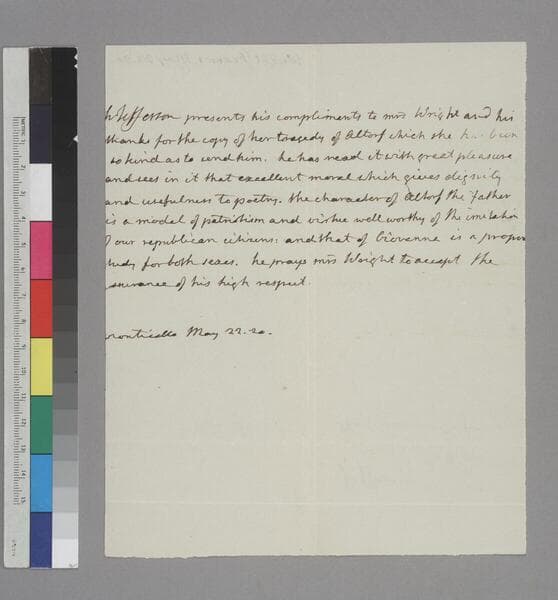 Th Jefferson presents his compliments to mrs Wright and his
thanks for the copy of her tragedy of Altorf which she has been
so kind as to send him. he has read it with great pleasure
and sees in it that excellent moral which gives dignity
and usefulness to poetry. the character of Altorf the father
is a model of patriotism and virtue well worthy of the imitation
of our republican citizens: and that of Giovanna is a proper
study for both sexes. he prays mrs Wright to accept the
assurance of his high respect.
Monticello May 22. 20.